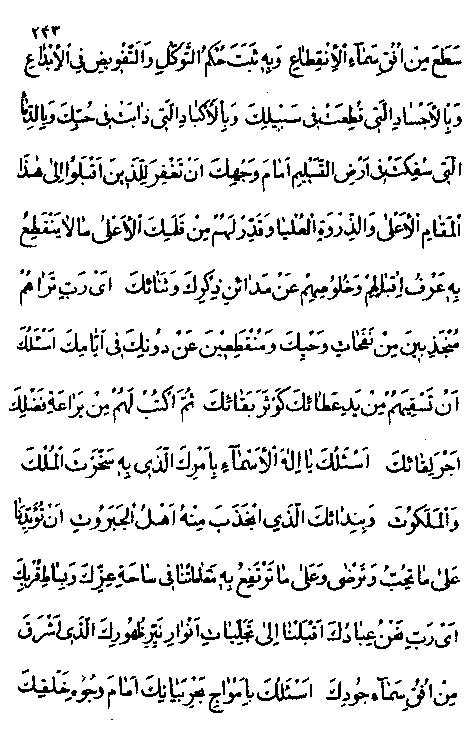 ٢٤٣
سَطَعَ مِنْ اُفُقِ سَمَاءِ الْاِنْقِطَاعِ وَبِهِ ثَبَتَ حُكْمُ التَّوَكُّلِ وَالتَّفْوِيضِ فِي الْاِبْدَاعِ
وَبِالْاَجْسَادِ الَّتِي قُطِّعَتْ فِي سَبِيلِكَ وَبِالْاَكْبَادِ الَّتِي ذَابَتْ فِي حُبِّكَ وَبِالدِّمَاءِ
الَّتِي سُفِكَتْ فِي اَرْضِ التَّسْلِيمِ اَمَامَ وَجْهِكَ اَنْ تَغْفِرَ لِلَّذِينَ اَقْبَلُوا اِلَى هٰذَا
الْمَقَامِ الْاَعْلَى وَالذِّرْوَةِ الْعُلْيَا وَقَدِّرْ لَهُمْ مِنْ قَلَمِكَ الْاَعْلَى مَا لَا يَنْقَطِعُ
بِهِ عَرْفُ اِقْبَالِهِمْ وَخُلُوصِهِمْ عَنْ مَدَائِنِ ذِكْرِكَ وَثَنَائِكَ اَيْ رَبِّ تَرَاهُمْ
مُنْجَذِبِينَ مِنْ نَفَحَاتِ وَحْيِكَ وَمُنْقَطِعِينَ عَنْ دُونِكَ فِي اَيَّامِكَ اَسْئَلُكَ
اَنْ تَسْقِيَهُمْ مِنْ يَدِ عَطَائِكَ كَوْثَرَ بَقَائِكَ ثُمَّ اكْتُبْ لَهُمْ مِنْ يَرَاعَةِ فَضْلِكَ
اَجْرَ لِقَائِكَ اَسْئَلُكَ يَا اِلٰهَ الْاَسْمَاءِ بِاَمْرِكَ الَّذِي بِهِ سَخَّرْتَ الْمُلْكَ
وَالْمَلَكُوتَ وَبِنِدَائِكَ الَّذِي انْجَذَبَ مِنْهُ اَهْلُ الْجَبَرُوتِ اَنْ تُؤَيِّدَنَا
عَلَى مَا تُحِبُّ وَتَرْضَى وَعَلَى مَا تَرْتَفِعُ بِهِ مَقَامَاتُنَا فِي سَاحَةِ عِزِّكَ وَبِسَاطِ قُرْبِكَ
اَيْ رَبِّ نَحْنُ عِبَادُكَ اَقْبَلْنَا اِلَى تَجَلِّيَاتِ اَنْوَارِ نَيِّرِ ظُهُورِكَ الَّذِي اَشْرَقَ
مِنْ اُفُقِ سَمَاءِ جُودِكَ اَسْئَلُكَ بِاَمْوَاجِ بَحْرِ بَيَانِكَ اَمَامَ وُجُوهِ خَلْقِكَ